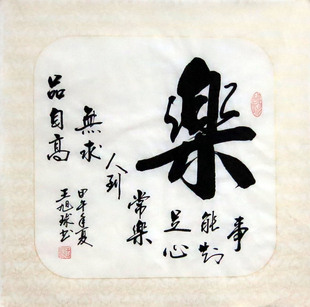 樂
事
能知
足心
常樂
人到
無求
品自高
甲午年夏
王旭球书